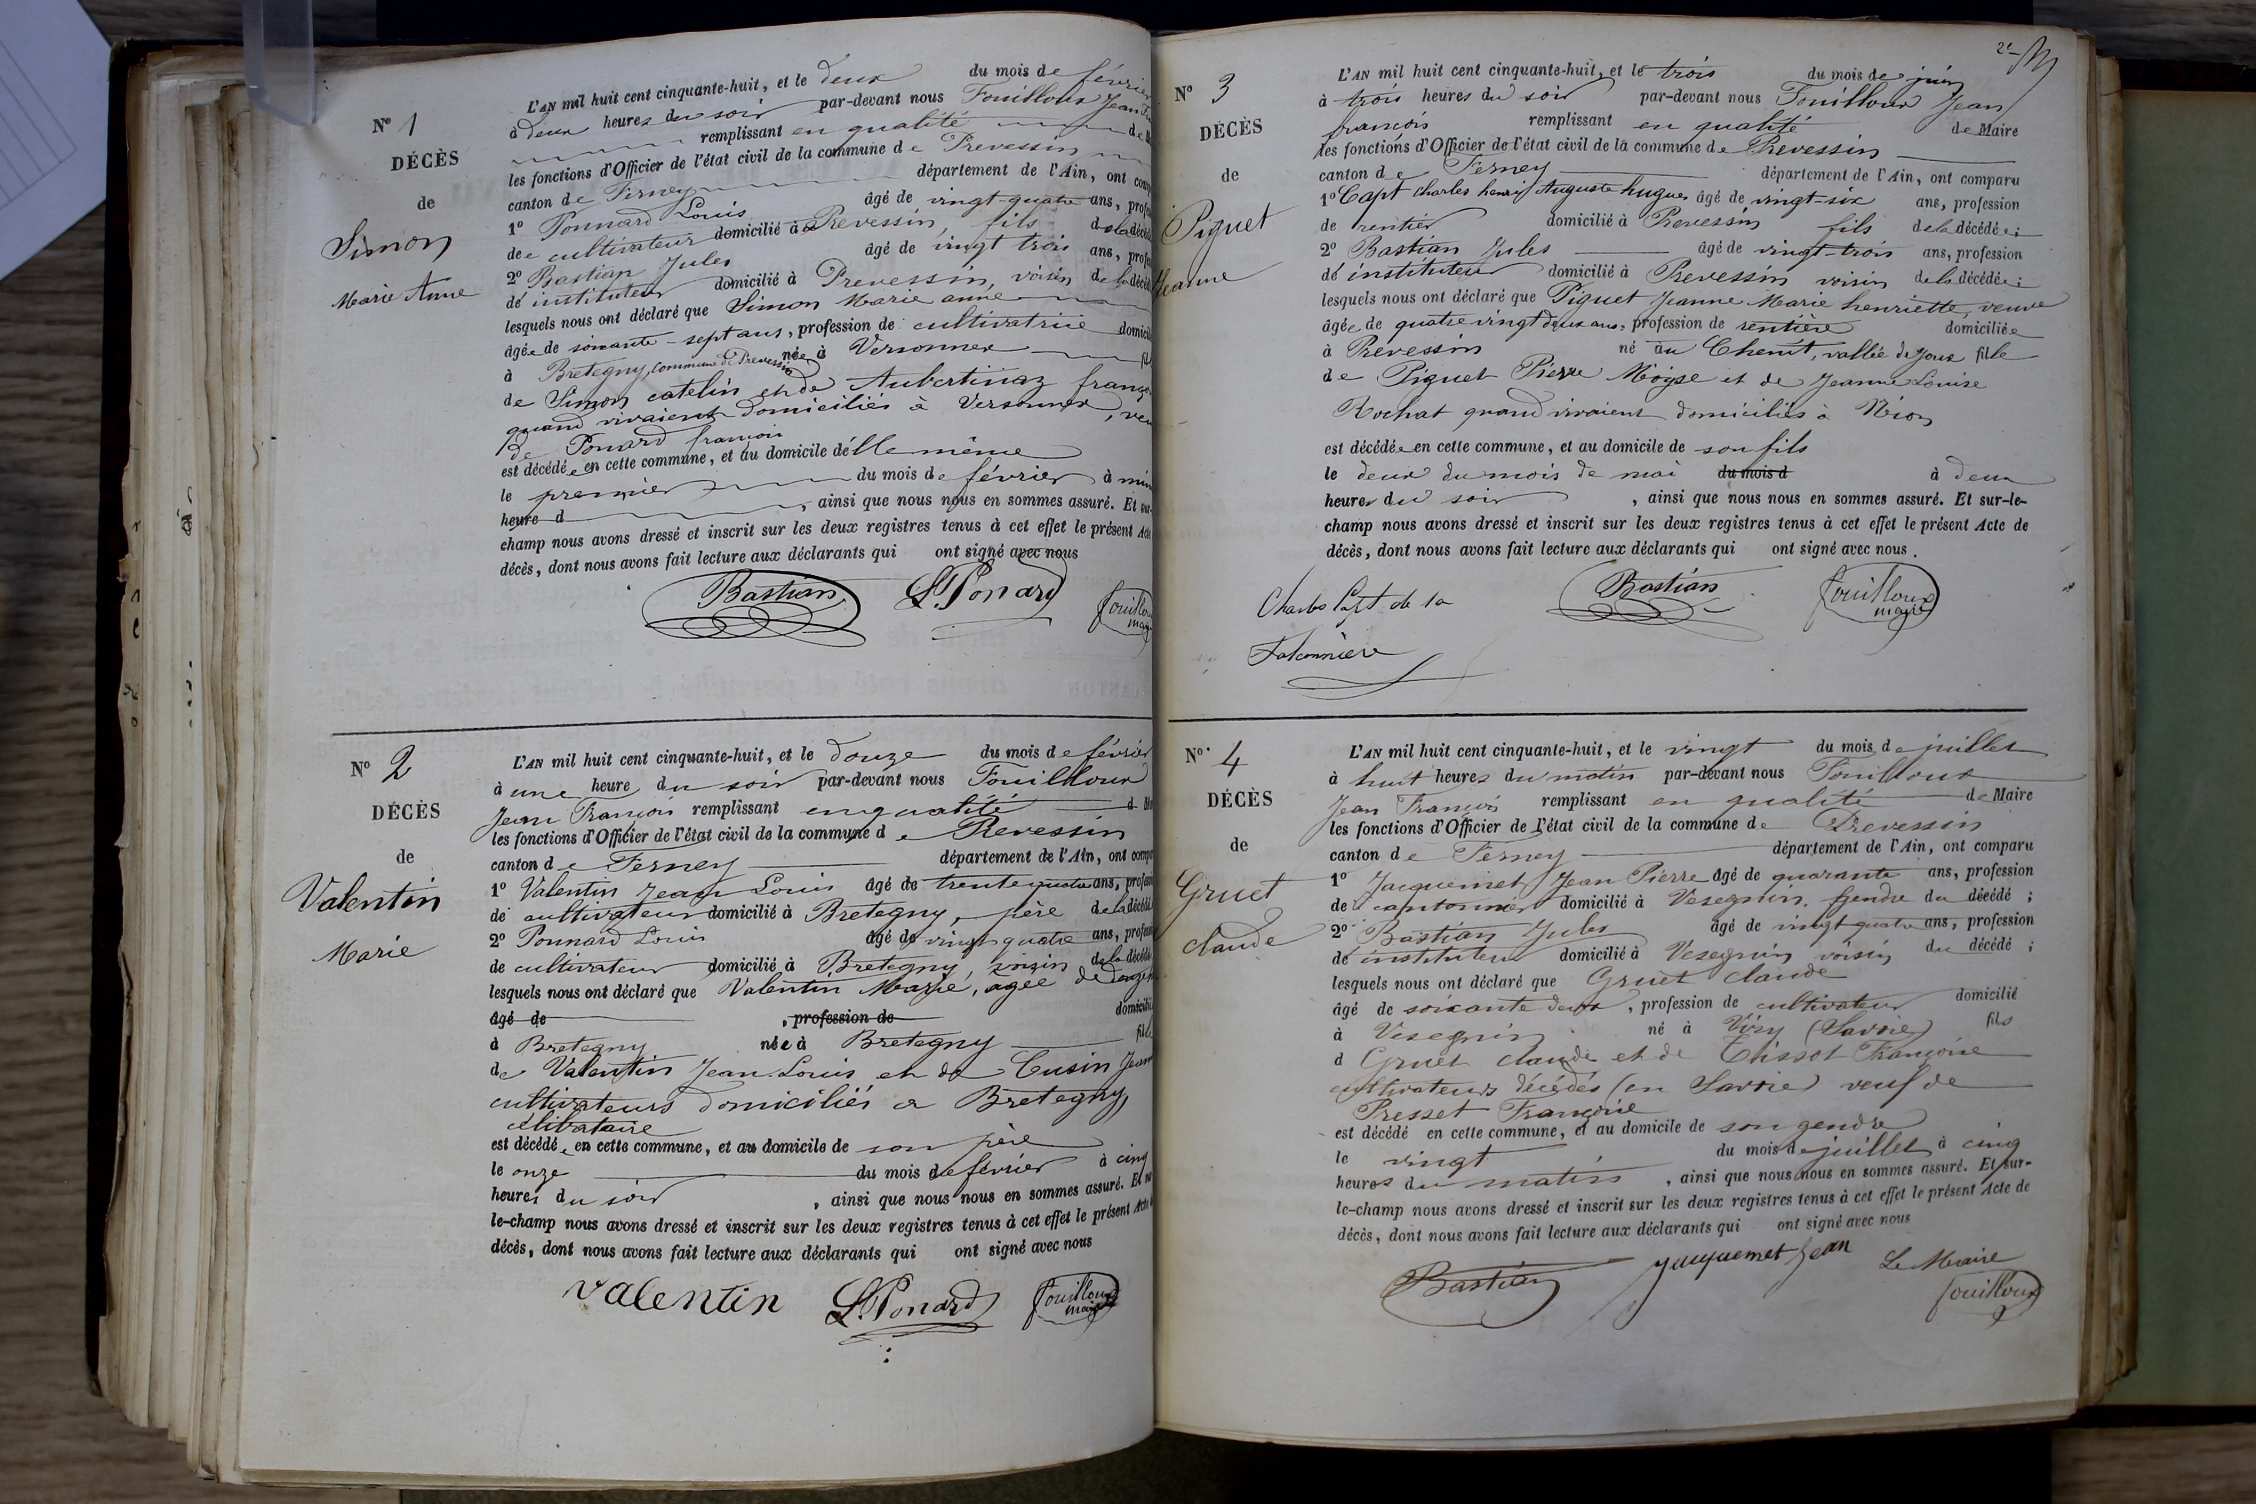 N° 1
DÉCÈS
de
Simon
Marie Anne
L'AN mil huit cent cinquante-huit, et le deux du mois de février
à deux heures du soir par-devant nous Fouilloux Jean
remplissant en qualité de
les fonctions d'Officier de l'état civil de la commune de Prevessin
canton de Ferney département de l'Ain, ont
1° Ponnard Louis âgé de vingt-quatre ans,
de cultivateur domicilié à Prevessin, fils de la
2° Bastian Jules âgé de vingt trois ans,
de instituteur domicilié à Prevessin, voisin de la
lesquels nous ont déclaré que Simon Marie anne
âgée de soixante-sept ans, profession de cultivatrice
à Bretegny, commune de Prevessin née à Versonnex
de Simon catelin et de Aubertinaz
quand vivaient domiciliés à Versonnex,
de Ponard françois
est décédée en cette commune, et au domicile d'elle même
le premier du mois de février à
heure d , ainsi que nous nous en sommes assuré. Et
champ nous avons dressé et inscrit sur les deux registres tenus à cet effet le présent
décès, dont nous avons fait lecture aux déclarants qui ont signé avec nous
Bastian L. Ponard Fouilloux
N° 2
DÉCÈS
de
Valentin
Marie
L'AN mil huit cent cinquante-huit, et le douze du mois de février
à une heure du soir par-devant nous Fouilloux
Jean François remplissant en qualité
les fonctions d'Officier de l'état civil de la commune de Prevessin
canton de Ferney département de l'Ain, ont
1° Valentin Jean Louis âgé de trente quatre ans,
de cultivateur domicilié à Bretegny, père de la
2° Ponnard Louis âgé de vingt quatre ans,
de cultivateur domicilié à Bretegny, voisin de la
lesquels nous ont déclaré que Valentin Marie, agée de
âgé de , profession de
à Bretegny née à Bretegny
de Valentin Jean Louis et de Cusin
cultivateurs domiciliés a Bretegny,
célibataire
est décédée en cette commune, et au domicile de son père
le onze du mois de février à cinq
heures du soir , ainsi que nous nous en sommes assuré. Et
le-champ nous avons dressé et inscrit sur les deux registres tenus à cet effet le présent Acte
décès, dont nous avons fait lecture aux déclarants qui ont signé avec nous
valentin L. Ponard Fouilloux maire
N° 3
DÉCÈS
de
Piguet
Jeanne
L'AN mil huit cent cinquante-huit, et le trois du mois de juin
à trois heures du soir par-devant nous Fouilloux Jean
françois remplissant en qualité de Maire
les fonctions d'Officier de l'état civil de la commune de Prevessin
canton de Ferney département de l'Ain, ont comparu
1° Capt Charles henri Auguste hugues âgé de vingt-six ans, profession
de rentier domicilié à Prevessin fils de la décédée;
2° Bastian Jules âgé de vingt-trois ans, profession
de instituteur domicilié à Prevessin voisin de la décédée;
lesquels nous ont déclaré que Piguet Jeanne Marie henriette, veuve
âgée de quatre vingt deux ans, profession de rentière domiciliée
à Prevessin né au Chenit, vallée de Joux fille
de Piguet Pierre Moyse et de Jeanne Louise
Rochat quand vivaient domiciliés à Nion
est décédée en cette commune, et au domicile de son fils
le deux du mois de mai du mois d à deux
heures du soir , ainsi que nous nous en sommes assuré. Et sur-le-
champ nous avons dressé et inscrit sur les deux registres tenus à cet effet le présent Acte de
décès, dont nous avons fait lecture aux déclarants qui ont signé avec nous.
Bastian Fouilloux maire
Charles Capt de la
Falconnière
N° 4
DÉCÈS
de
Gruet
claude
L'AN mil huit cent cinquante-huit, et le vingt du mois de juillet
à huit heures du matin par-devant nous Fouilloux
Jean François remplissant en qualité de Maire
les fonctions d'Officier de l'état civil de la commune de Prevessin
canton de Ferney département de l'Ain, ont comparu
1° Jacquemet Jean Pierre âgé de quarante ans, profession
de cantonnier domicilié à Vesegnin, gendre du décédé;
2° Bastian Jules âgé de vingt quatre ans, profession
de instituteur domicilié à Vesegnin voisin du décédé;
lesquels nous ont déclaré que Gruet claude
âgé de soixante deux, profession de cultivateur domicilié
à Vesegnin né à Viry (Savoie) fils
d Gruet claude et de Tissot Françoise
cultivateurs décédés (en Savoie) veuf de
Presset Françoise
est décédé en cette commune, et au domicile de son gendre
le vingt du mois de juillet à cinq
heures du matin , ainsi que nous nous en sommes assuré. Et sur-
le-champ nous avons dressé et inscrit sur les deux registres tenus à cet effet le présent Acte de
décès, dont nous avons fait lecture aux déclarants qui ont signé avec nous
Bastian jacquemet jean Le Maire
Fouilloux